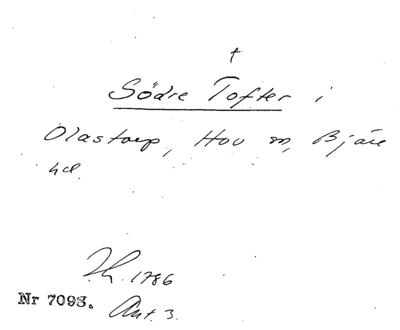 †
Södre Tofter i
Olastorp, Hov sn, Bjäre
hd.
1786
Nr 7093. Akt 3.